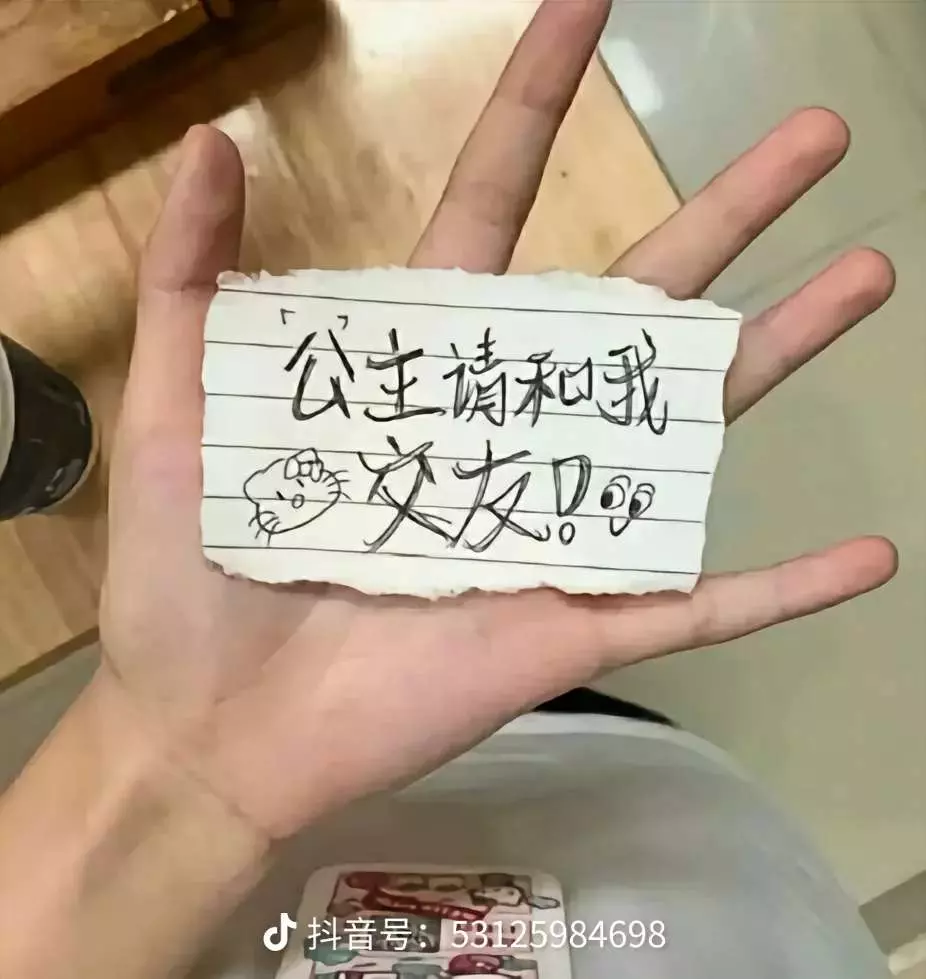 「公」主请和我
交友!
抖音号：53125984698